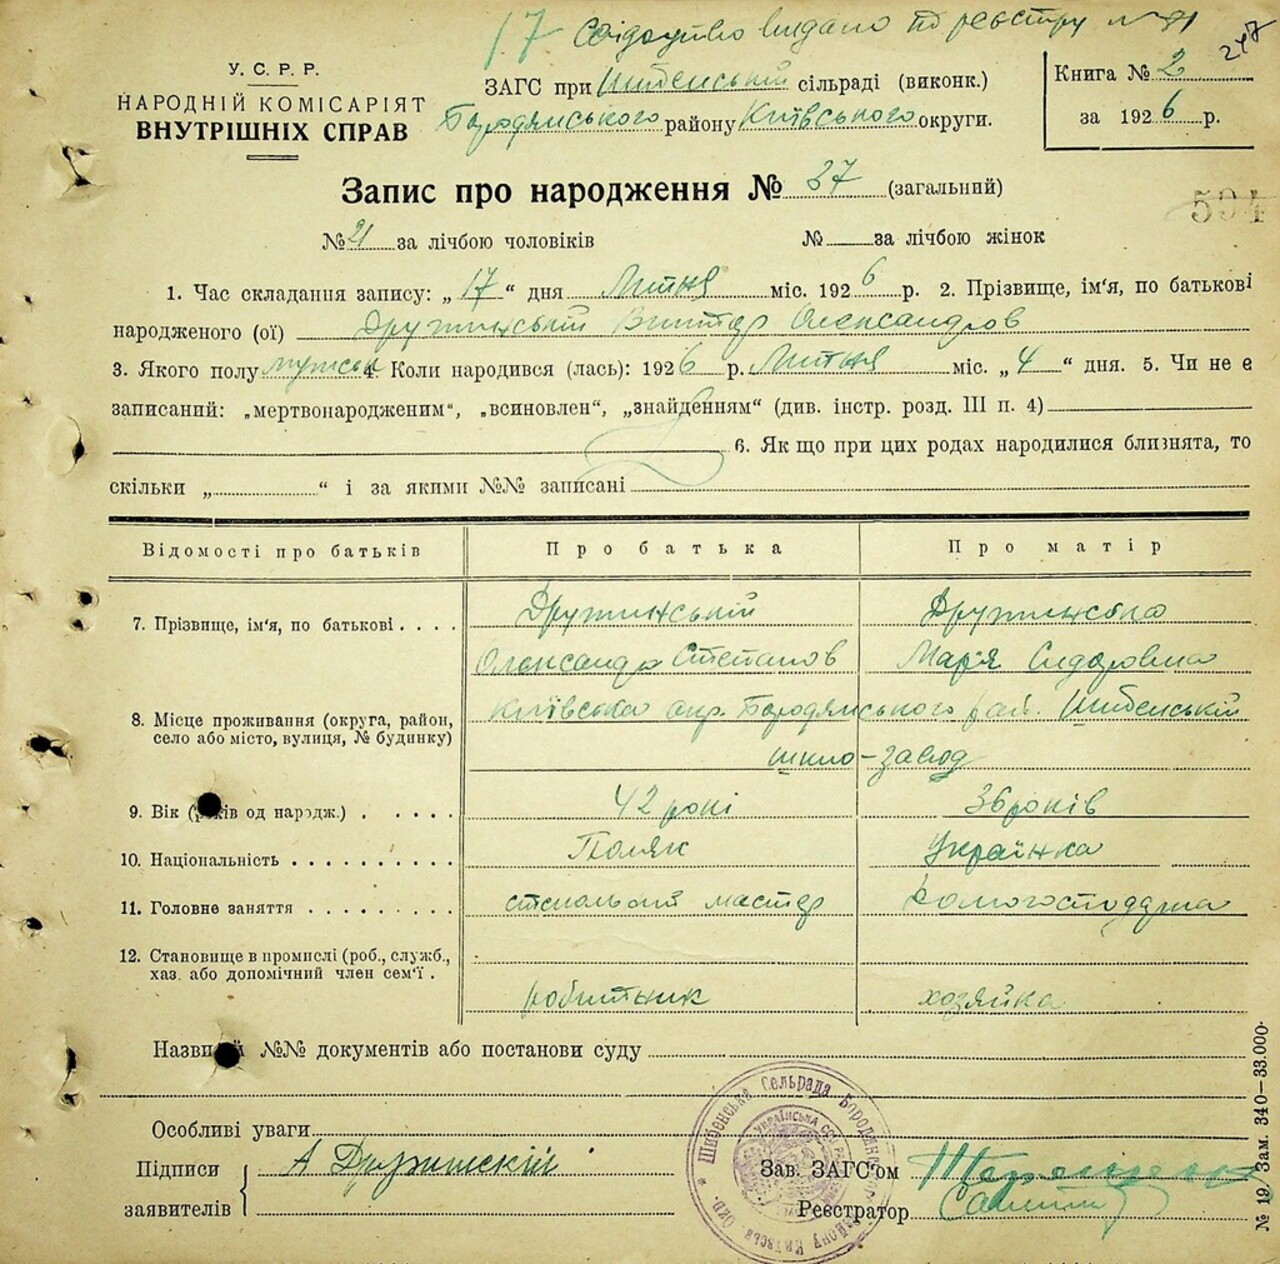 17 Свідоцтво видано по реєстру №
247
У. С. Р. Р.
НАРОДНІЙ КОМІСАРІЯТ
ВНУТРІШНІХ СПРАВ
ЗАГС при Шибенській сільраді (виконк.)
Бородянського району Київського округи.
Книга № 2
за 1926 р.
Запис про народження № 37 (загальний)
594
№ 21 за лічбою чоловіків № за лічбою жінок
1. Час складання запису: „ 17 “ дня Липня міс. 1926 р. 2. Прізвище, ім'я, по батькові
народженого (ої) Дружинській Виктор Олександров
3. Якого полу мужськ 4. Коли народився (лась): 1926 р. Липня міс. „ 4 “ дня. 5. Чи не є
записаний: „мертвонародженим“, „всиновлен“, „знайденням“ (див. інстр. розд. III п. 4)
6. Як що при цих родах народилися близнята, то
скільки „ “ і за якими №№ записані
Відомості про батьків Про батька Про матір
7. Прізвище, ім'я, по батькові . . . . Дружинській Дружинська
Олександр Степанов Мар'я Сидоровна
8. Місце проживання (округа, район, село або місто, вулиця, № будинку) Київська окр. Бородянського рай. Шибенській
шкло-завод
9. Вік (років од народж.) . . . . . 42 рокі 36 років
10. Національність . . . . . . . . . Поляк Українка
11. Головне заняття . . . . . . . . мастер Домогосподарка
12. Становище в промислі (роб., служб.,
хаз. або допомічний член сем'ї . робитник хозяйка
Назви й №№ документів або постанови суду
Особливі уваги
Підписи заявителів А Дружинский
Зав. ЗАГС'ом
Реєстратор
Шибенська Сельрада Бородянського району Київськ. Окр.
№ 19. Зам. 340—33.000·